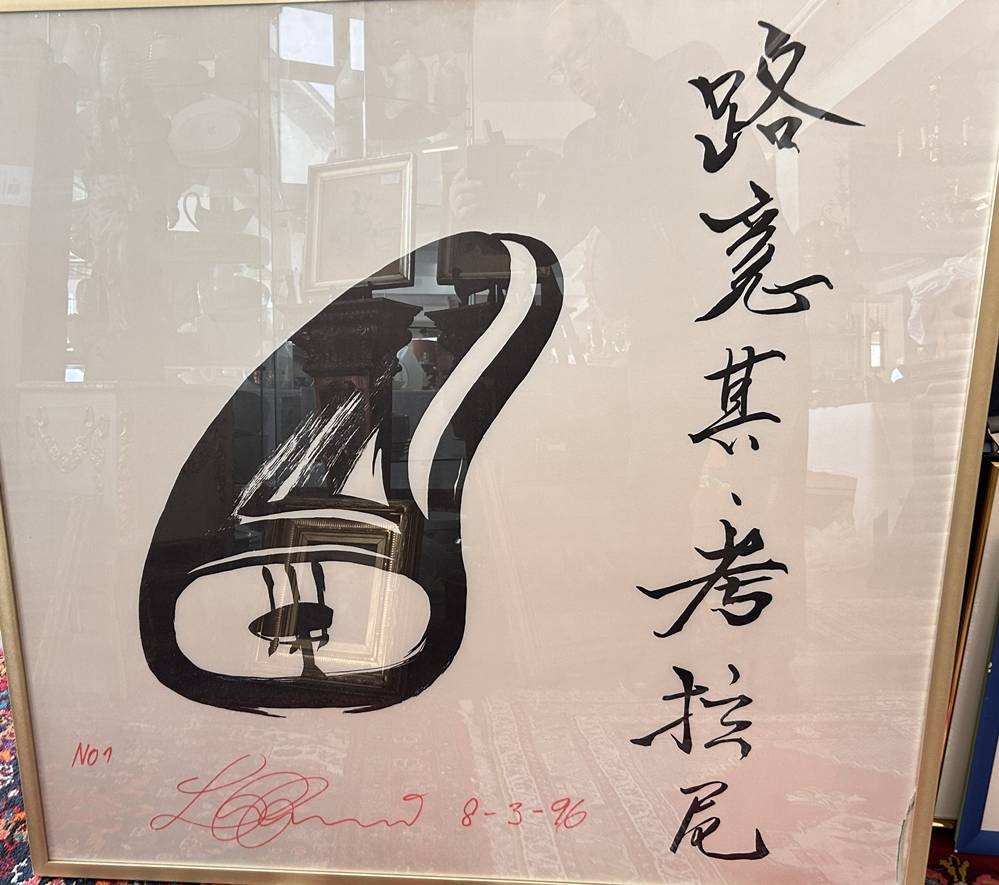 路意其·考拉尼
NO1
8-3-96